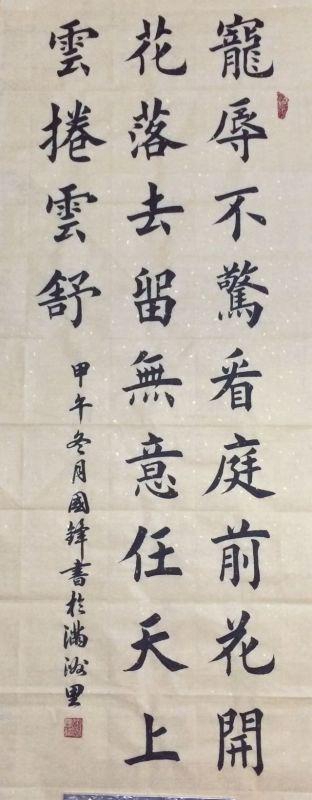 寵辱不驚看庭前花開
花落去留無意任天上
雲捲雲舒
甲午冬月國鋒書於滿洲里